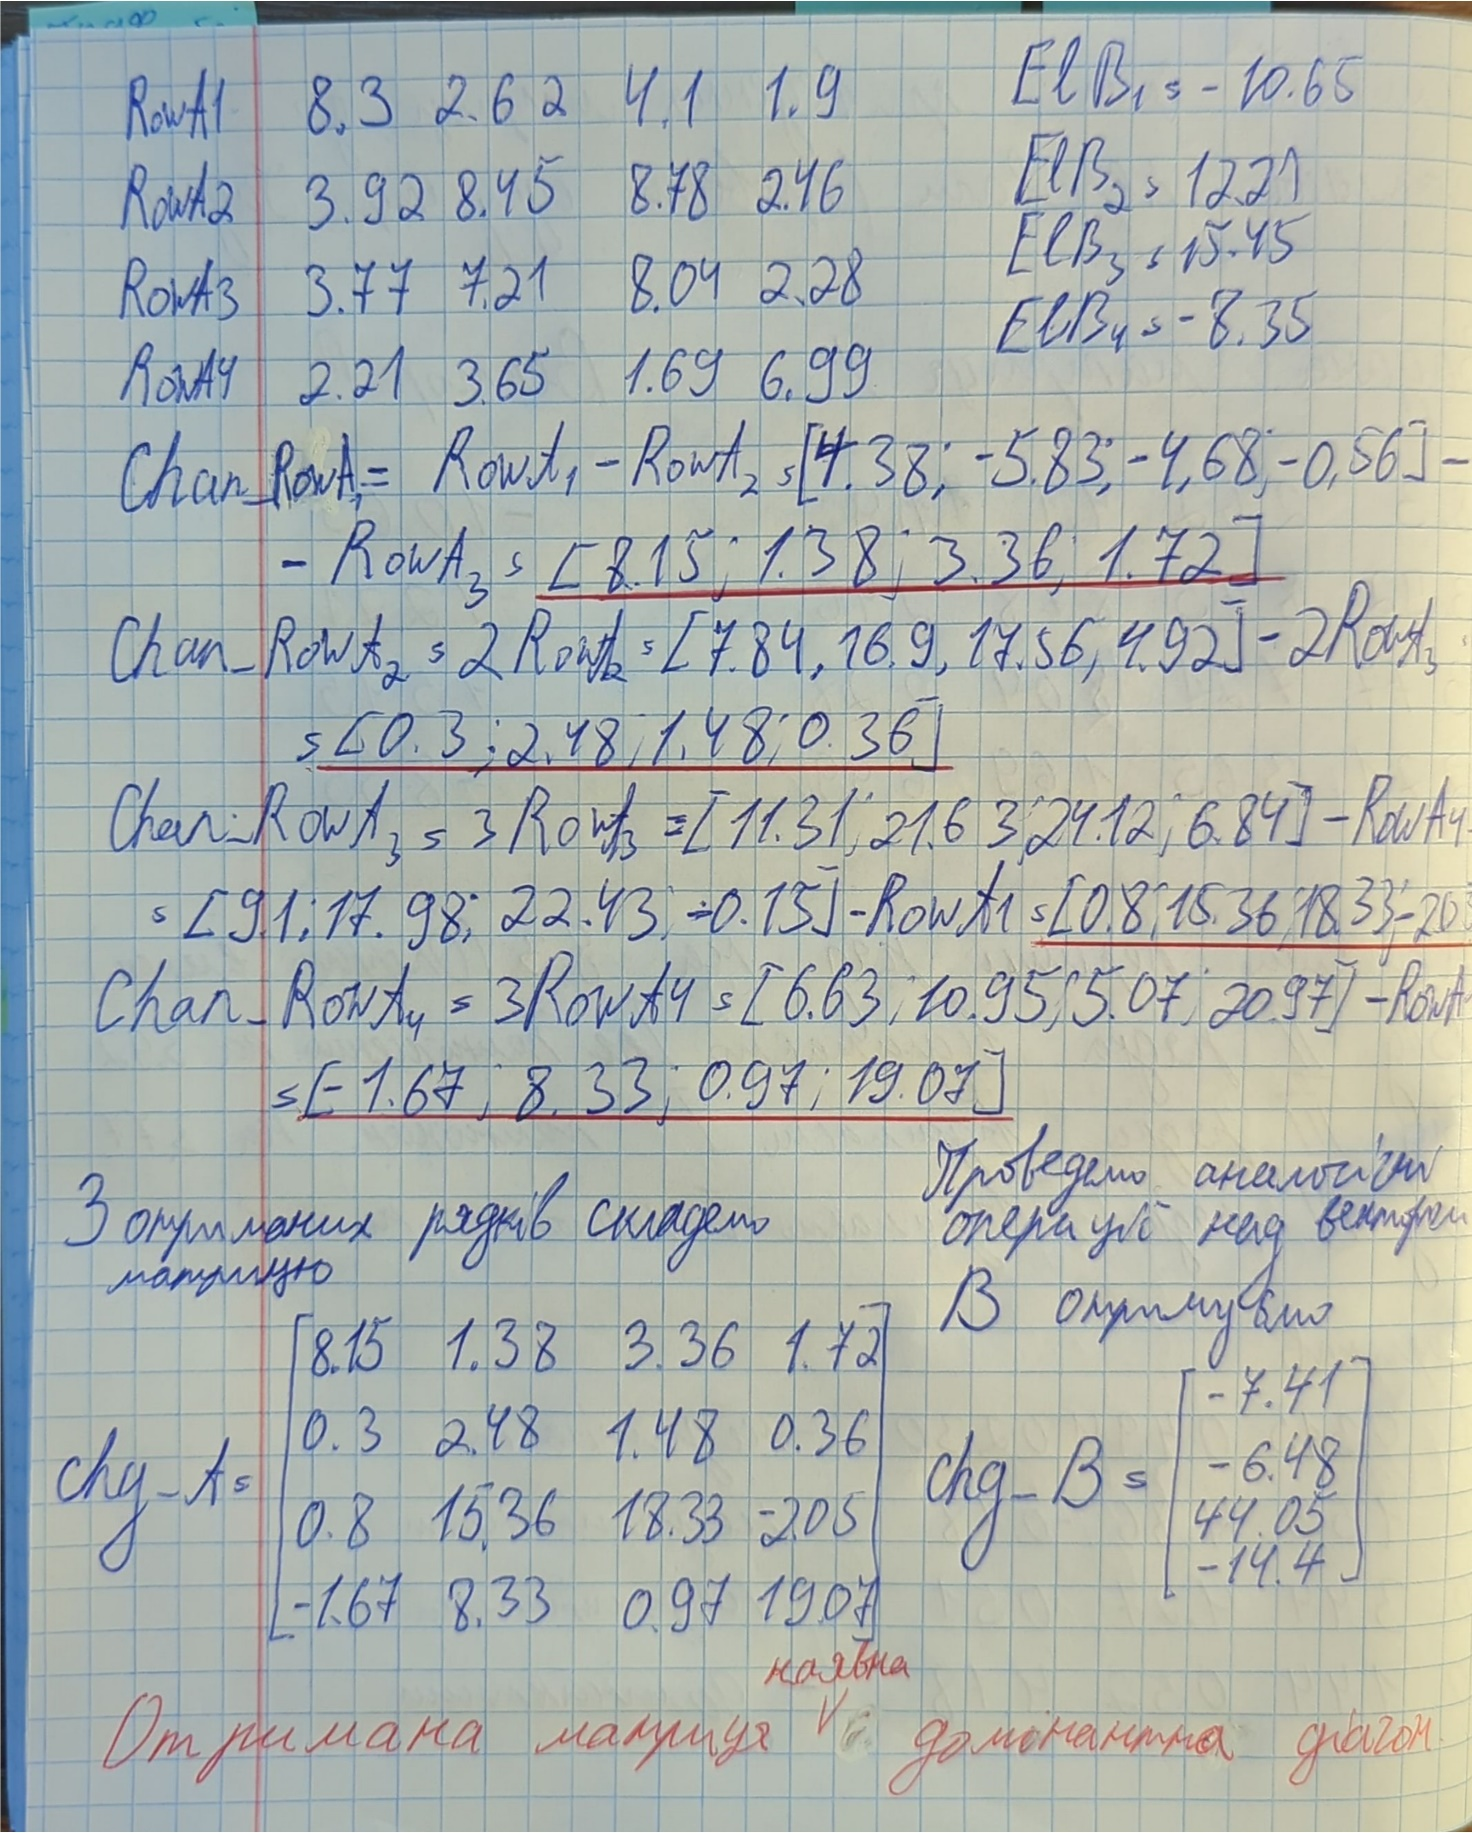 RowA1 8.3 2.62 4.1 1.9 ElB₁ = -10.65
RowA2 3.92 8.45 8.78 2.46 ElB₂ = 12.21
RowA3 3.77 7.21 8.04 2.28 ElB₃ = 15.45
RowA4 2.21 3.65 1.69 6.99 ElB₄ = -8.35
Chan_RowA₁ = RowA₁ - RowA₂ = [4.38; -5.83; -4,68; -0,56] -
- RowA₃ = [8.15; 1.38; 3.36; 1.72]
Chan_RowA₂ = 2RowA₂ = [7.84, 16.9, 17.56, 4.92] - 2RowA₃
= [0.3; 2.48; 1.48; 0.36]
Chan_RowA₃ = 3RowA₃ = [11.31; 21.63; 24.12; 6.84] - RowA4
= [9.1; 17.98; 22.43; -0.15] - RowA1 = [0.8; 15.36; 18.33; -2.05
Chan_RowA₄ = 3RowA4 = [6.63; 10.95; 5.07; 20.97] - RowA
= [-1.67; 8.33; 0.97; 19.07]
З отриманих рядків складемо
матрицю
Проведемо аналогічні
операції над вектором
В отримуємо
chg_A = [8.15 1.38 3.36 1.72
0.3 2.48 1.48 0.36
0.8 15.36 18.33 -2.05
-1.67 8.33 0.97 19.07]
chg_B = [-7.41
-6.48
44.05
-14.4]
наявна
Отримана матриця V домінантна діагон